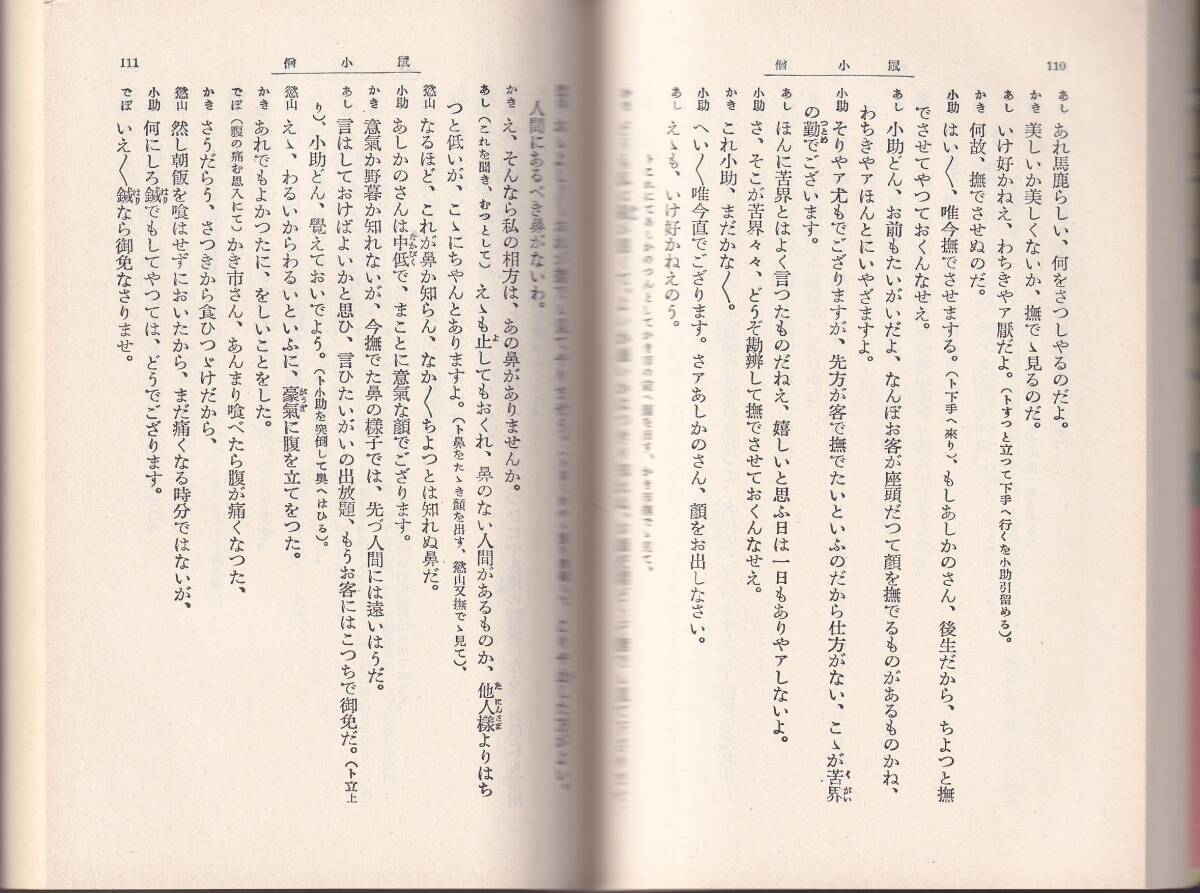 110
鼠小僧
あし　あれ馬鹿らしい、何をさつしやるのだよ。
かき　美しいか美しくないか、撫でゝ見るのだ。
あし　いけ好かねえ、わちきやァ厭だよ。（トすつと立つて下手へ行くを小助引留める）。
かき　何故、撫でさせぬのだ。
小助　はい〳〵、唯今撫でさせまする。（ト下手へ來り）、もしあしかのさん、後生だから、ちよつと撫
でさせてやつておくんなせえ。
あし　小助どん、お前もたいがいだよ、なんぼお客が座頭だつて顔を撫でるものがあるものかね、
わちきやァほんとにいやざますよ。
小助　そりやァ尤もでござりますが、先方が客で撫でたいといふのだから仕方がない、こゝが苦界
の勤でございます。
あし　ほんに苦界とはよく言つたものだねえ、嬉しいと思ふ日は一日もありやアしないよ。
小助　さ、そこが苦界々々、どうぞ勘辨して撫でさせておくんなせえ。
かき　これ小助、まだかな〳〵。
小助　へい〳〵唯今直でござります。さアあしかのさん、顔をお出しなさい。
あし　えゝも、いけ好かねえのう。
トこれにてあしかのつんとしてかき市の前へ顔を出す、かき市撫でゝ見て、
111
鼠小僧
人間にあるべき鼻がないわ。
かき　え、そんなら私の相方は、あの鼻がありませんか。
あし　（これを聞き、むつとして）えゝも止してもおくれ、鼻のない人間があるものか、他人樣よりはち
つと低いが、こゝにちやんとありますよ。（ト鼻をたゝき顔を出す、慾山又撫でゝ見て）、
慾山　なるほど、これが鼻か知らん、なか〳〵ちよつとは知れぬ鼻だ。
小助　あしかのさんは中低で、まことに意氣な顔でござります。
かき　意氣か野暮か知れないが、今撫でた鼻の樣子では、先づ人間には遠いはうだ。
あし　言はしておけばよいかと思ひ、言ひたいがいの出放題、もうお客にはこつちで御免だ。（ト立上
り）、小助どん、覺えておいでよう。（ト小助を突倒して奥へはひる）。
慾山　えゝ、わるいからわるいといふに、豪氣に腹を立てをつた。
かき　あれでもよかつたに、をしいことをした。
でぼ　（腹の痛む思入にて）かき市さん、あんまり喰べたら腹が痛くなつた、
かき　さうだらう、さつきから食ひつゞけだから、
慾山　然し朝飯を喰はせずにおいたから、まだ痛くなる時分ではないが、
小助　何にしろ鍼でもしてやつては、どうでござります。
でぼ　いえ〳〵鍼なら御免なさりませ。